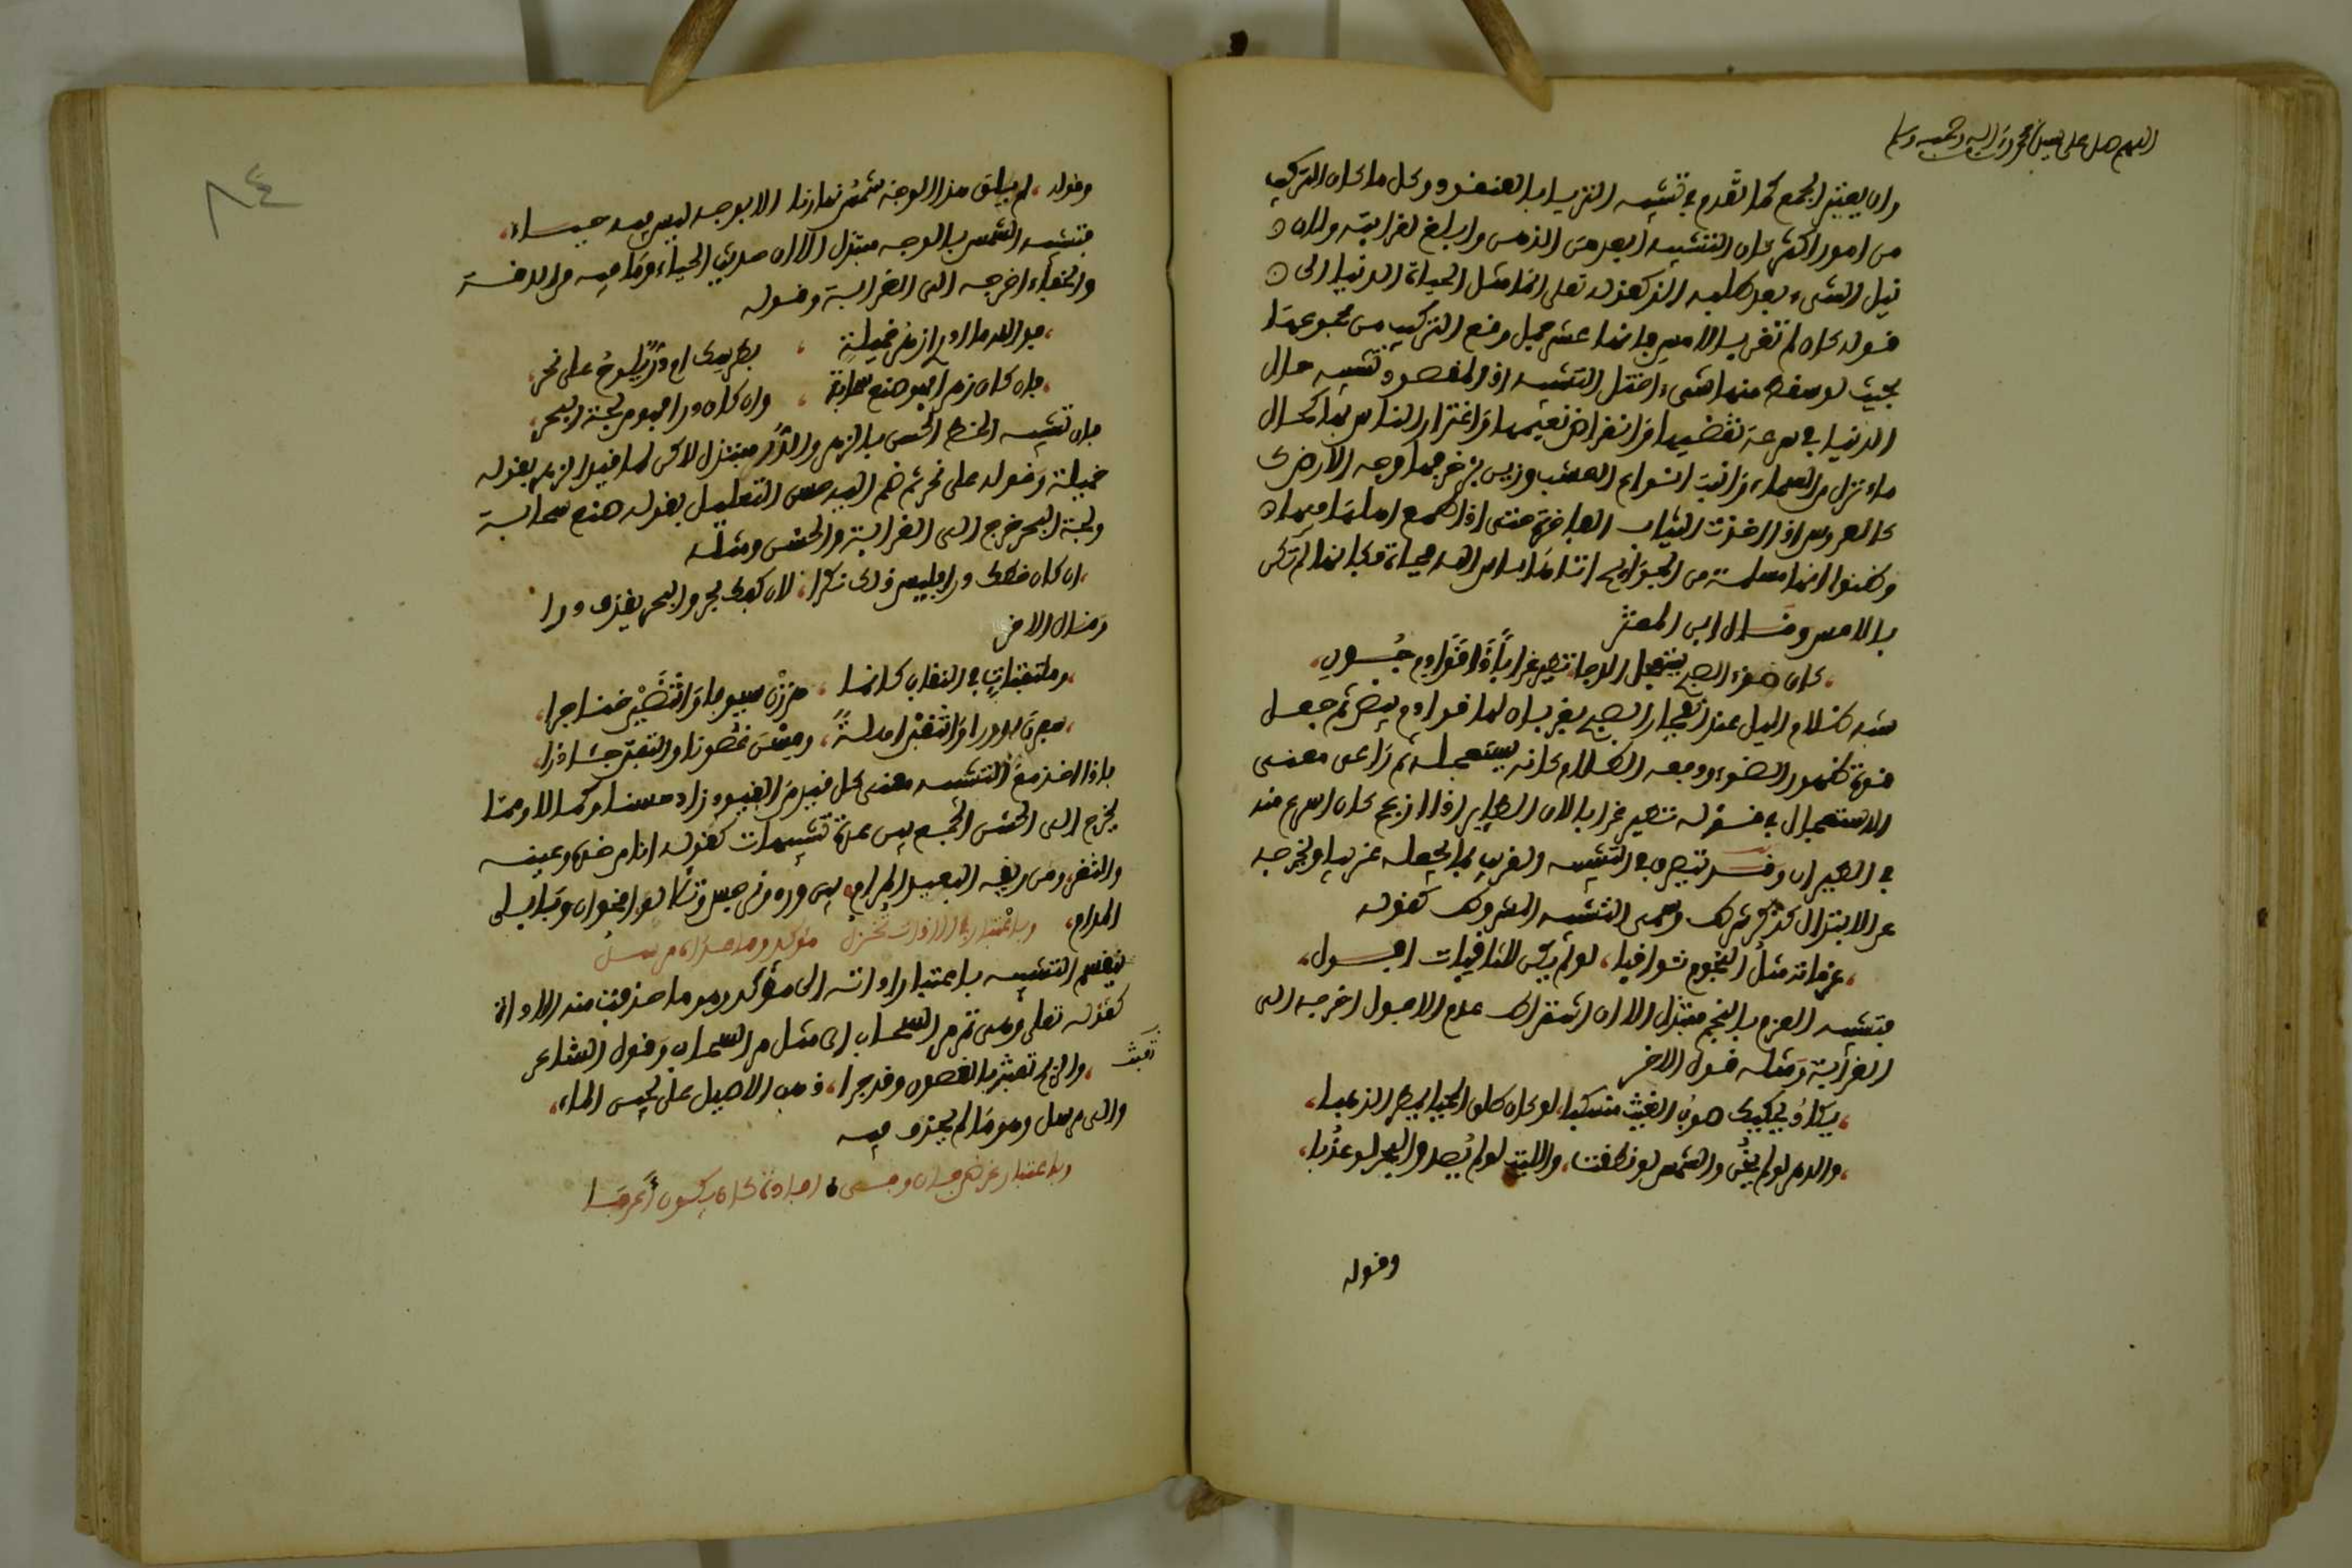 اللهم صل على سيدنا محمد وءاله وصحبه وسلم
وان يعتبر الجمع كما تقدم في تشبيه الثريا بالعنقود وكل ما كان التركيب
من امور اكثر كان التشبيه ابعد من الذهن وابلغ لغرابته ولان
نيل الشيء بعد طلبه الذ كقوله تعلى انما مثل الحياة الدنيا الى
قوله كان لم تغن بالامس فانها عشر جمل وقع التركيب من مجموعها
بحيث لو سقط منها شيء اختل التشبيه اذ المقصود تشبيه حال
الدنيا في سرعة تقضيها وانقراض نعيمها واغترار الناس بها كحال
ماء نزل من السماء وانبت انواع العشب وزين بزخرفها وجه الارض
كالعروس اذا اخذت الثياب الفاخرة حتى اذا طمع اهلها فيها
وظنوا انها مسلمة من الجوائح اتاها باس الله فجاة فكانها لم تكن
بالامس وقال ابن المعتز
كان ضوء الصبح يستعجل الدجا نطير غرابا ذا قوادم جون
شبه ظلام الليل عند انفجار الصبح بغربان لها قوادم بيض ثم جعل
قوة ظهور الضوء ودفعه الظلام كانه يستعجله ثم راعى معنى
الاستعجال في قوله نطير غرابا لان الطاير اذا ازعج كان اسرع منه
في الطيران وقد يتصرف في التشبيه القريب بما يجعله غريبا ويخرجه
عن الابتذال كذكر شرط وسمى التشبيه المشروط كقوله
عزماته مثل النجوم ثواقبا، لو لم يكن للثاقبات افول،
فتشبيه العزم بالنجم مبتذل الا ان اشتراط عدم الافول اخرجه الى
الغرابة ومثله قول الاخر
يكاد يحكيك صوب الغيث منسكبا، لو كان طلق المحيا يمطر الذهبا،
والدهر لو لم يخن والشمس لو نطقت، والليث لو لم يصد والبحر لو عذبا،
وقوله
٨٤
وقوله، لم يلق هذا الوجه شمس نهارنا الا بوجه ليس فيه حياء،
فتشبيه الشمس بالوجه مبتذل الا ان حديث الحياء وما فيه من الدقة
والخفاء اخرجه الى الغرابة وقوله
فوالله ما ادري ازهر خميلة ، بطرسك ام در يلوح على نحر،
فان كان زهرا فهو صنع سحابة ، وان كان درا فهو من لجة البحر،
فان تشبيه الخط الحسن بالزهر والدر مبتذل لاكن لما قيد الزهر بقوله
خميلة وقوله على نحر ثم ضم اليه حسن التعليل بقوله صنع سحابة
ولجة البحر خرج الى الغرابة والحسن ومثله
ان كان خطك درا فليس ذلك نكرا، لان كفك بحر والبحر يقذف درا
وقال الاخر
ومنتقبات في النقاب كانما ، هززن سيوفا وانتضين خناجرا،
سفرن بدورا وانتقبن اهلة، ومسن غصونا والتفتن جئاذرا،
فاذا اخذ مع التشبيه معنى كل قيد من القيود زاد حسنا وكمالا ومما
يخرج الى الحسن الجمع بين عدة تشبيهات كقوله
المدام، وباعتبار الاداة مؤكد مرسل
ينقسم التشبيه باعتبار اداته الى مؤكد وهو ما حذفت منه الاداة
كقوله تعلى وهي تمر مر السحاب اي مثل مر السحاب وقول الشاعر
تعبث
والريح تعبث بالغصون وقد جرا، ذهب الاصيل على لجين الماء،
والى مرسل وهو ما لم يحذف فيه
وباعتبار غرض كان يكون اعرفا